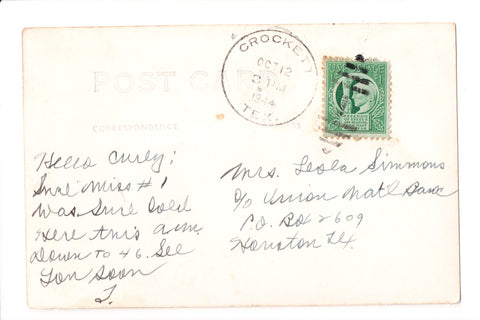 CROCKETT
OCT 12
3 PM
1944
TEX.
POST CARD
CORRESPONDENCE
Hello Curly;
Sure Miss # 1
Was Sure Cold
Here this a.m.
Down to 46. See
You Soon
J.
Mrs. Leola Simmons
c/o Union Nat'l Bank
P.O. Box 2609
Houston Tx.